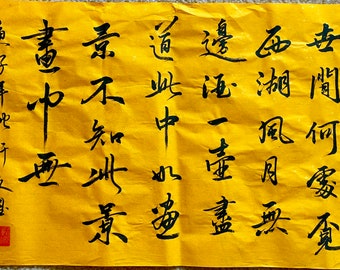 世間何處覓
西湖風月無
邊酒一壺盡
道此中如畫
景不知此景
畫中無
庚子年